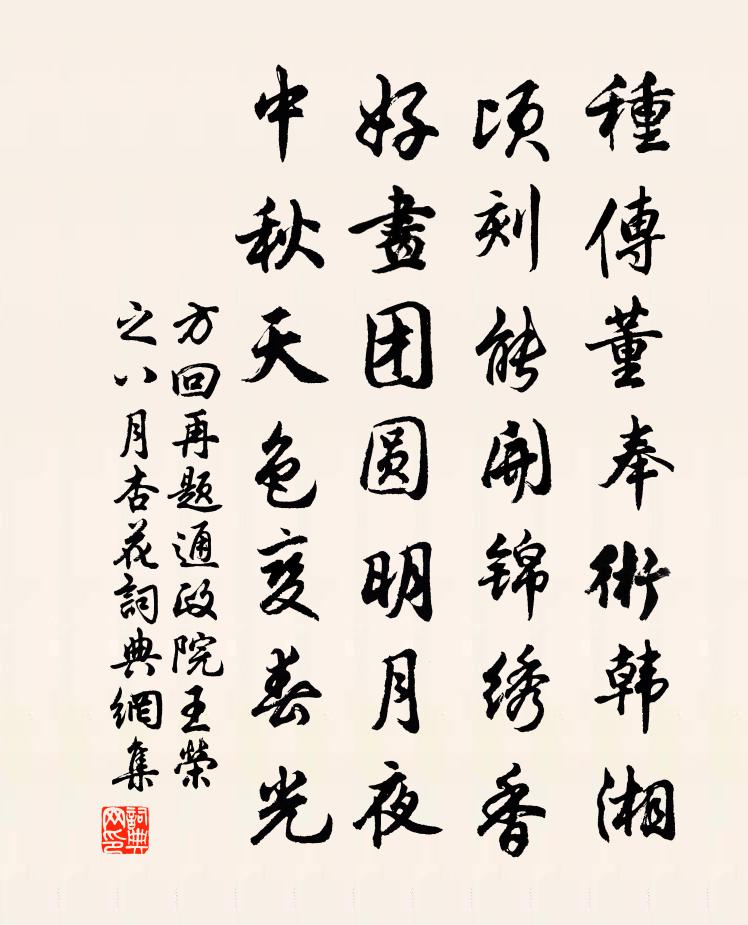 種傳董奉術韩湘
頃刻能開锦绣香
好畫团圆明月夜
中秋天色变春光
方回再题通政院王榮
之八月杏花詞典網集
詞典网印